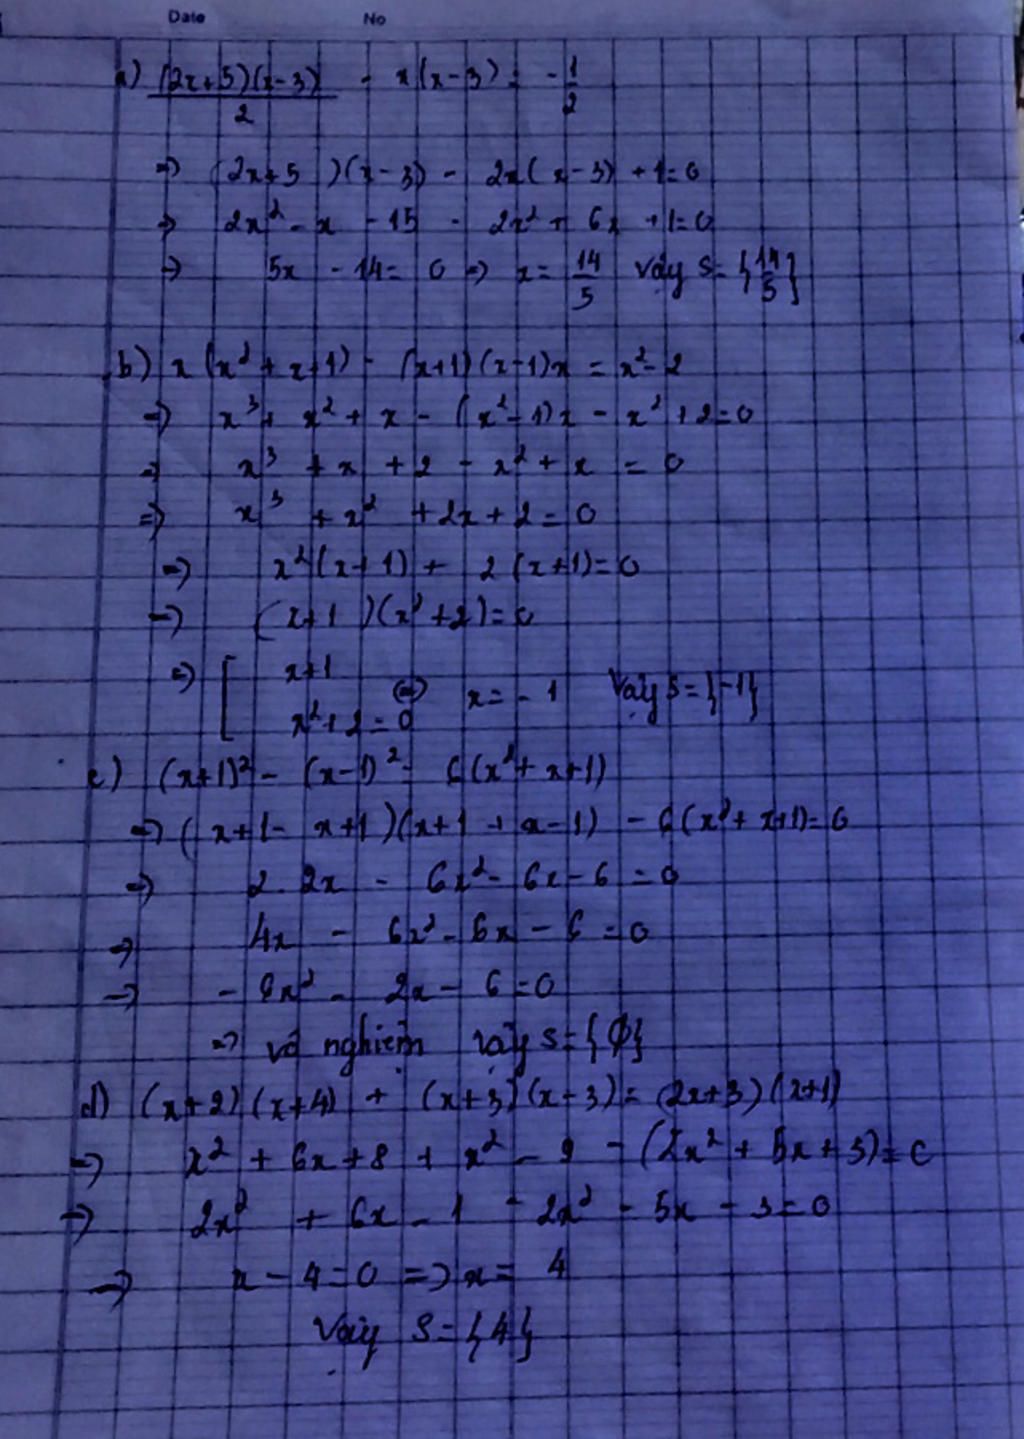 Date No
a) (2x+5)(x-3)/2 - x(x-3) = -1/2
=> (2x+5)(x-3) - 2x(x-3) + 1=0
=> 2x² - x - 15 - 2x² + 6x + 1=0
=> 5x - 14 = 0 => x = 14/5 Vậy S= {14/5}
b) x(x² + x+1) - (x+1)(x-1)x = x²-2
=> x³ + x² + x - (x²-1)x - x² + 2=0
=> x³ + x + 2 - x² + x = 0
=> x³ + x² + 2x+2=0
=> x²(x+1) + 2(x+1)=0
=> (x+1)(x²+2)=0
=> [ x+1
x²+2=0 <=> x=-1 Vậy S={-1}
c) (x+1)² - (x-1)² = 6(x²+x+1)
=> (x+1-x+1)(x+1+x-1) - 6(x²+x+1)=0
=> 2.2x - 6x²-6x-6=0
=> 4x - 6x²-6x-6=0
=> -6x² - 2x-6=0
=> vô nghiệm vậy S={∅}
d) (x+2)(x+4) + (x+3)(x-3)=(2x+3)(x+1)
=> x² + 6x+8 + x² - 9 - (2x² + 5x+3)=0
=> 2x² + 6x - 1 - 2x² - 5x - 3=0
=> x-4=0 => x= 4
Vậy S={4}